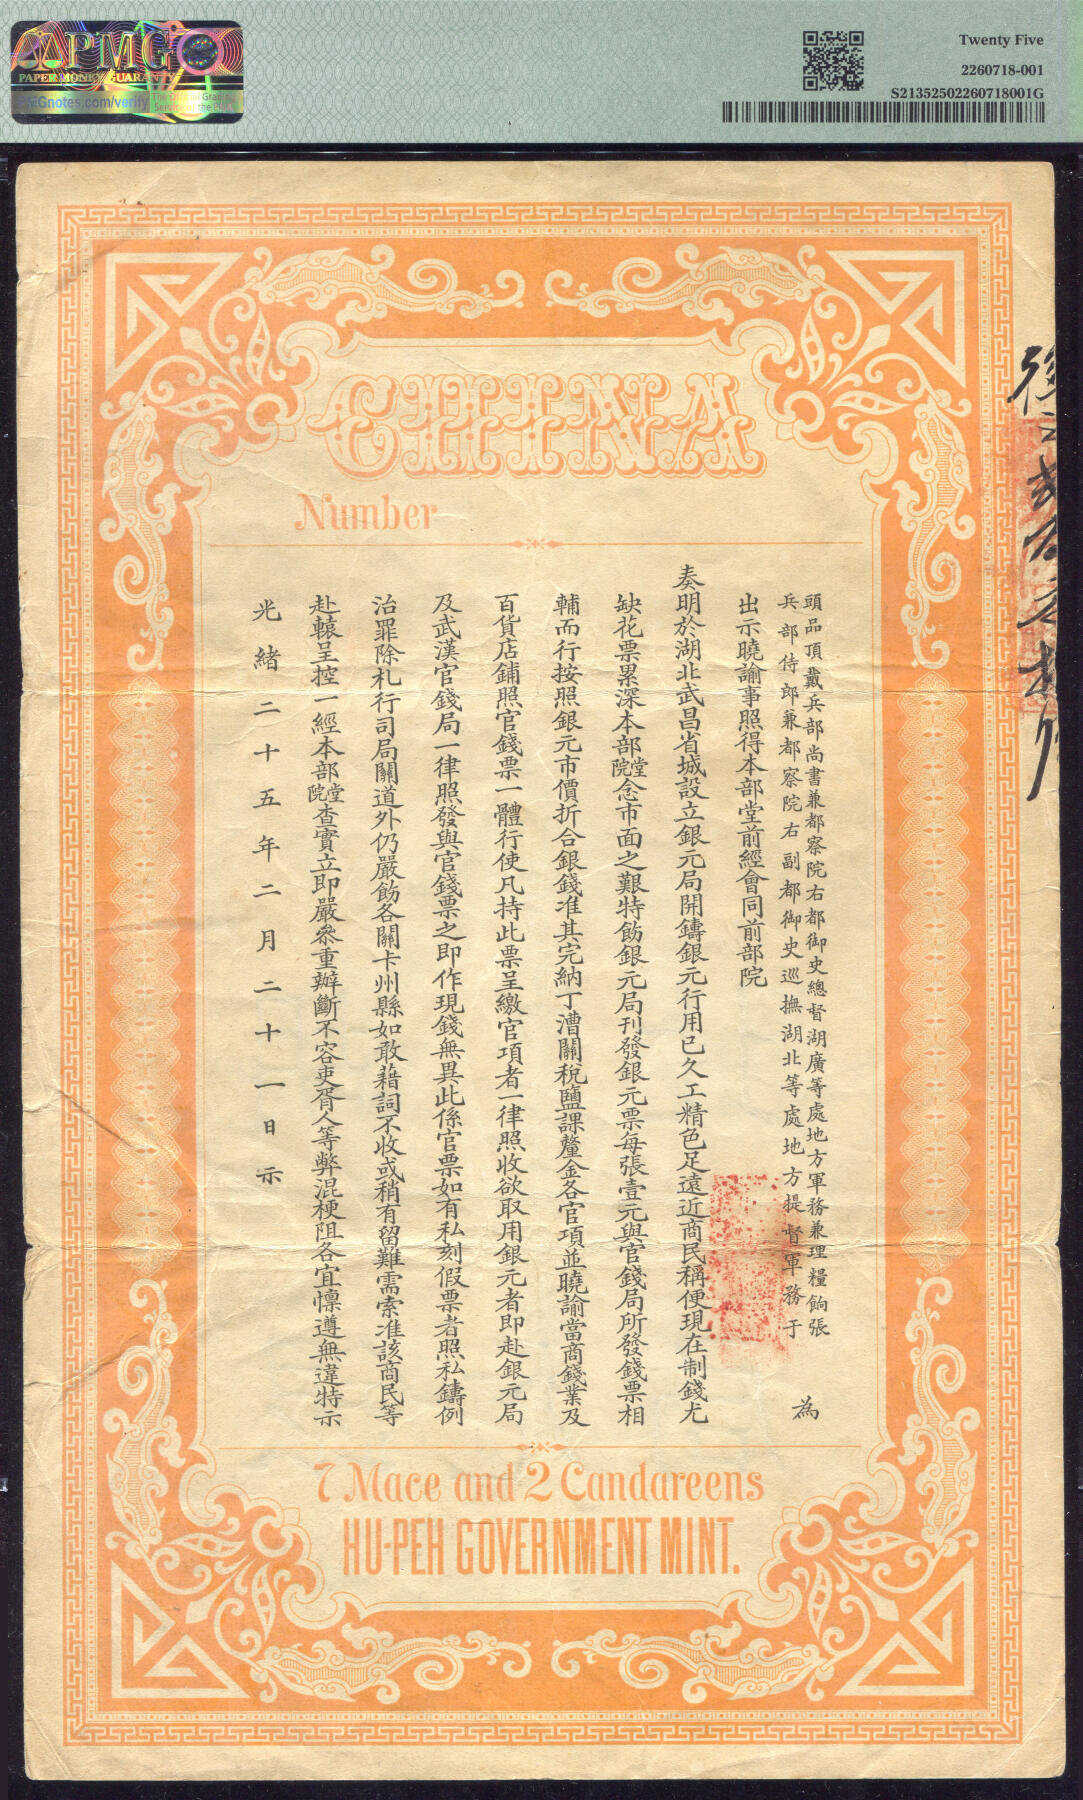 PMG
PAPER MONEY GUARANTY
PMGnotes.com/verify
The Official Grading
Service of the PNG
Twenty Five
2260718-001
S21352502260718001G
CHINA
Number
頭品頂戴兵部尚書兼都察院右都御史總督湖廣等處地方軍務兼理糧餉張
兵部侍郎兼都察院右副都御史巡撫湖北等處地方提督軍務于
為
出示曉諭事照得本部堂前經會同前部院
奏明於湖北武昌省城設立銀元局開鑄銀元行用已久工精色足遠近商民稱便現在制錢尤
缺花票累深本部堂院念市面之艱特飭銀元局刊發銀元票每張壹元與官錢局所發錢票相
輔而行按照銀元市價折合銀錢准其完納丁漕關稅鹽課釐金各官項並曉諭當商錢業及
百貨店鋪照官錢票一體行使凡持此票呈繳官項者一律照收欲取用銀元者即赴銀元局
及武漢官錢局一律照發與官錢票之即作現錢無異此係官票如有私刻假票者照私鑄例
治罪除札行司局關道外仍嚴飭各關卡州縣如敢藉詞不收或稍有留難需索准該商民等
赴轅呈控一經本部堂院查實立即嚴參重辦斷不容吏胥人等弊混梗阻各宜懍遵無違特示
光緒二十五年二月二十一日示
7 Mace and 2 Candareens
HU-PEH GOVERNMENT MINT.